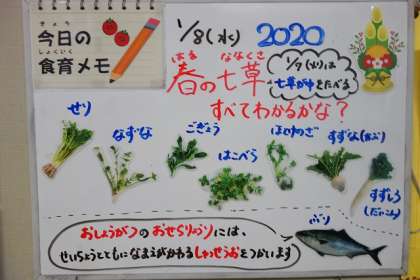 きょう
今日の
しょくいく
食育メモ
1/8(水) 2020
はる ななくさ
春の七草
1/7(火)は
七草がゆをたべる
すべてわかるかな?
せり
なずな
ごぎょう
はこべら
ほとけのざ
すずな(かぶ)
すずしろ
(だいこん)
ぶり
おしょうがつのおせちりょうりには、
せいちょうとともになまえがかわるしゅっせうおをつかいます